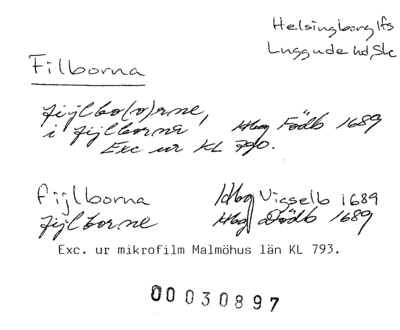 Helsingborg lfs
Luggude hd, Sk
Filborna
fijlbo(o)rne,
i fijlborna, Hbg Födb 1689
Exc ur KL 790.
fijlborna Hbg Vigselb 1689
fijlborne Hbg Dödb 1689
Exc. ur mikrofilm Malmöhus län KL 793.
00030897